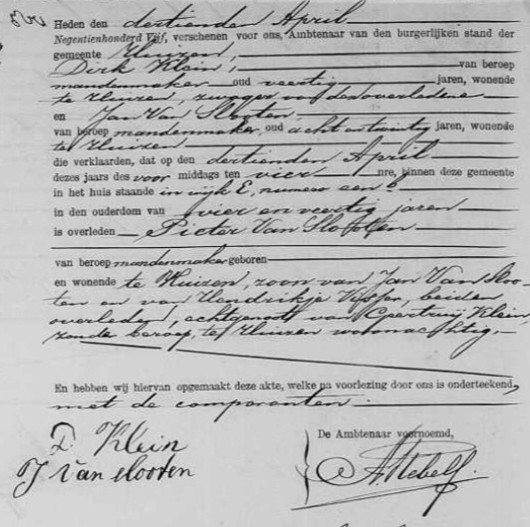 Heden den dertienden April
Negentienhonderd Vijf, verschenen voor ons, Ambtenaar van den burgerlijken stand der
gemeente Huizen,
Dirk Klein, van beroep
mandenmaker oud veertig jaren, wonende
te Huizen, zwager van den overledene
en Jan Van Slooten,
van beroep mandenmaker, oud acht en twintig jaren, wonende
te Huizen
die verklaarden, dat op den dertienden April
dezes jaars des voor middags ten vier ure, binnen deze gemeente
in het huis staande in wijk E, numero een
in den ouderdom van vier en veertig jaren
is overleden Pieter Van Slooten
van beroep mandenmaker geboren
en wonende te Huizen, zoon van Jan Van Sloo-
ten en van Hendrikje Visser, beiden
overleden, echtgenoot van Klein
zonder beroep, te Huizen woonachtig.
En hebben wij hiervan opgemaakt deze akte, welke na voorlezing door ons is onderteekend,
met de comparanten.
De Ambtenaar voornoemd,
D. Klein
J Van slooten